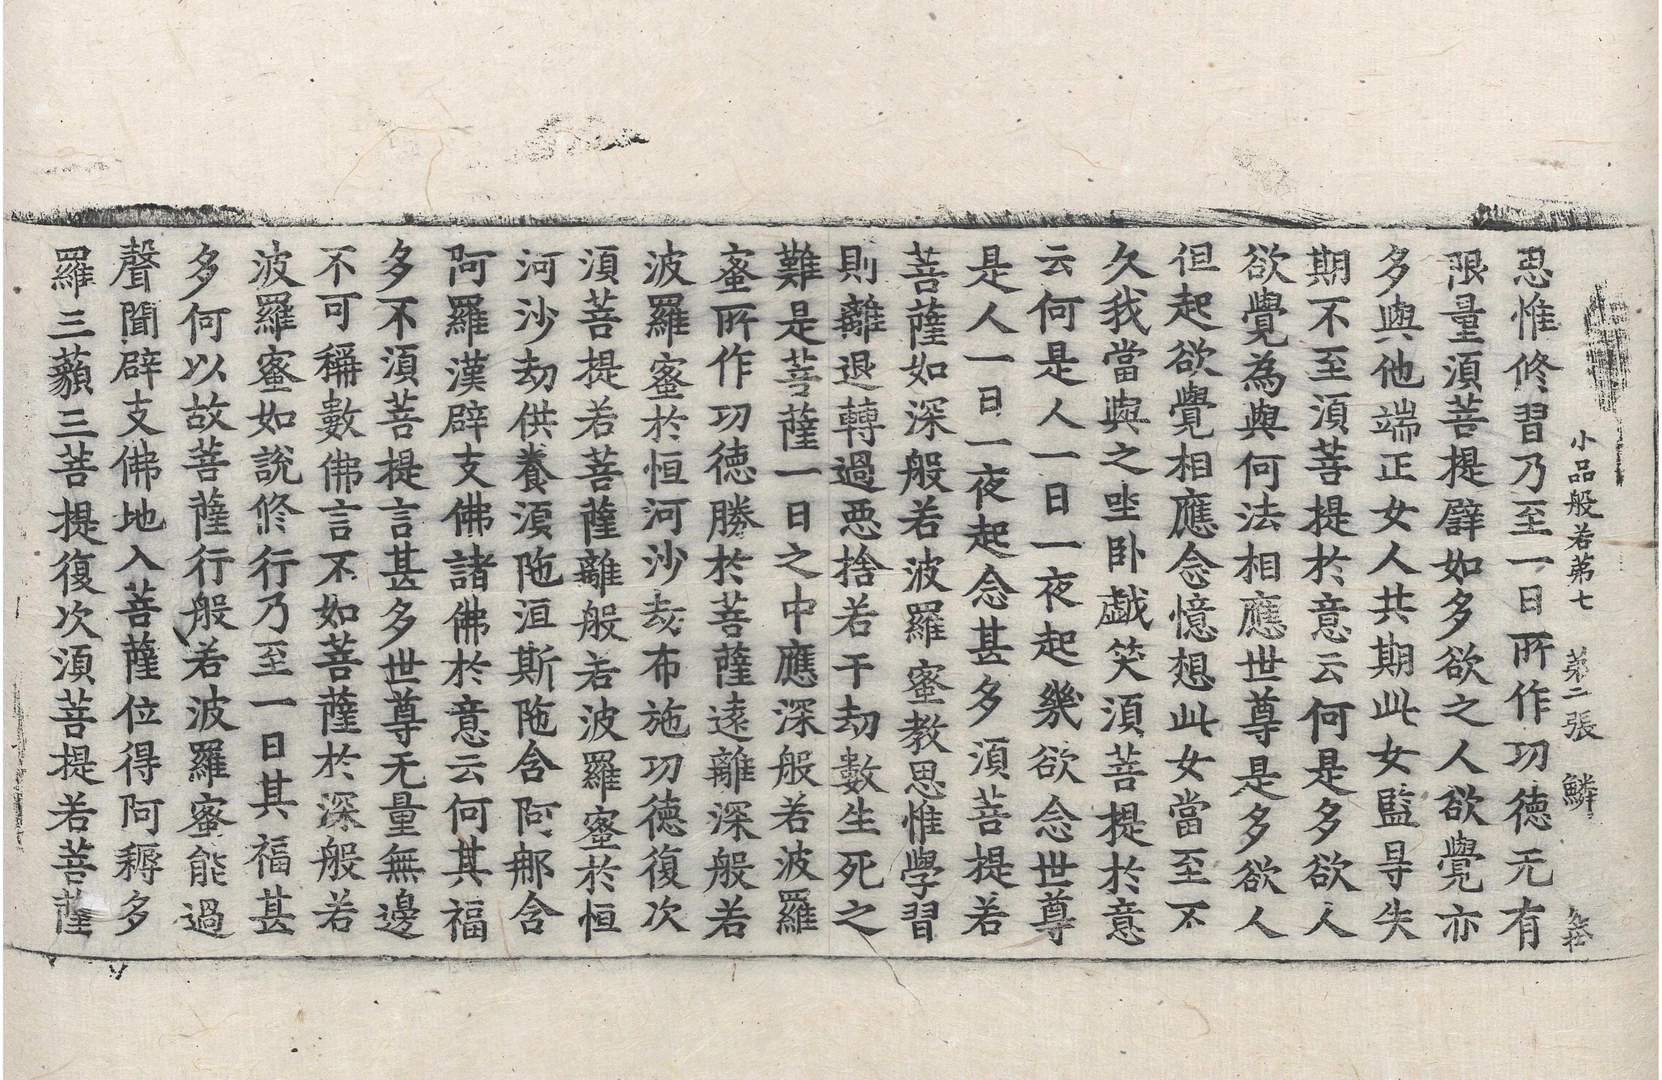 小品般若第七　第二張　鱗
思惟修習乃至一日所作功德无有
限量須菩提譬如多欲之人欲覺亦
多與他端正女人共期此女監㝵失
期不至須菩提於意云何是多欲人
欲覺為與何法相應世尊是多欲人
但起欲覺相應念憶想此女當至不
久我當與之坐卧戯笑須菩提於意
云何是人一日一夜起幾欲念世尊
是人一日一夜起念甚多須菩提若
菩薩如深般若波羅蜜教思惟學習
則離退轉過惡捨若干劫數生死之
難是菩薩一日之中應深般若波羅
蜜所作功德勝於菩薩遠離深般若
波羅蜜於恒河沙劫布施功德復次
須菩提若菩薩離般若波羅蜜於恒
河沙劫供養須陁洹斯陁含阿那含
阿羅漢辟支佛諸佛於意云何其福
多不須菩提言甚多世尊无量無邊
不可稱數佛言不如菩薩於深般若
波羅蜜如說修行乃至一日其福甚
多何以故菩薩行般若波羅蜜能過
聲聞辟支佛地入菩薩位得阿耨多
羅三藐三菩提復次須菩提若菩薩